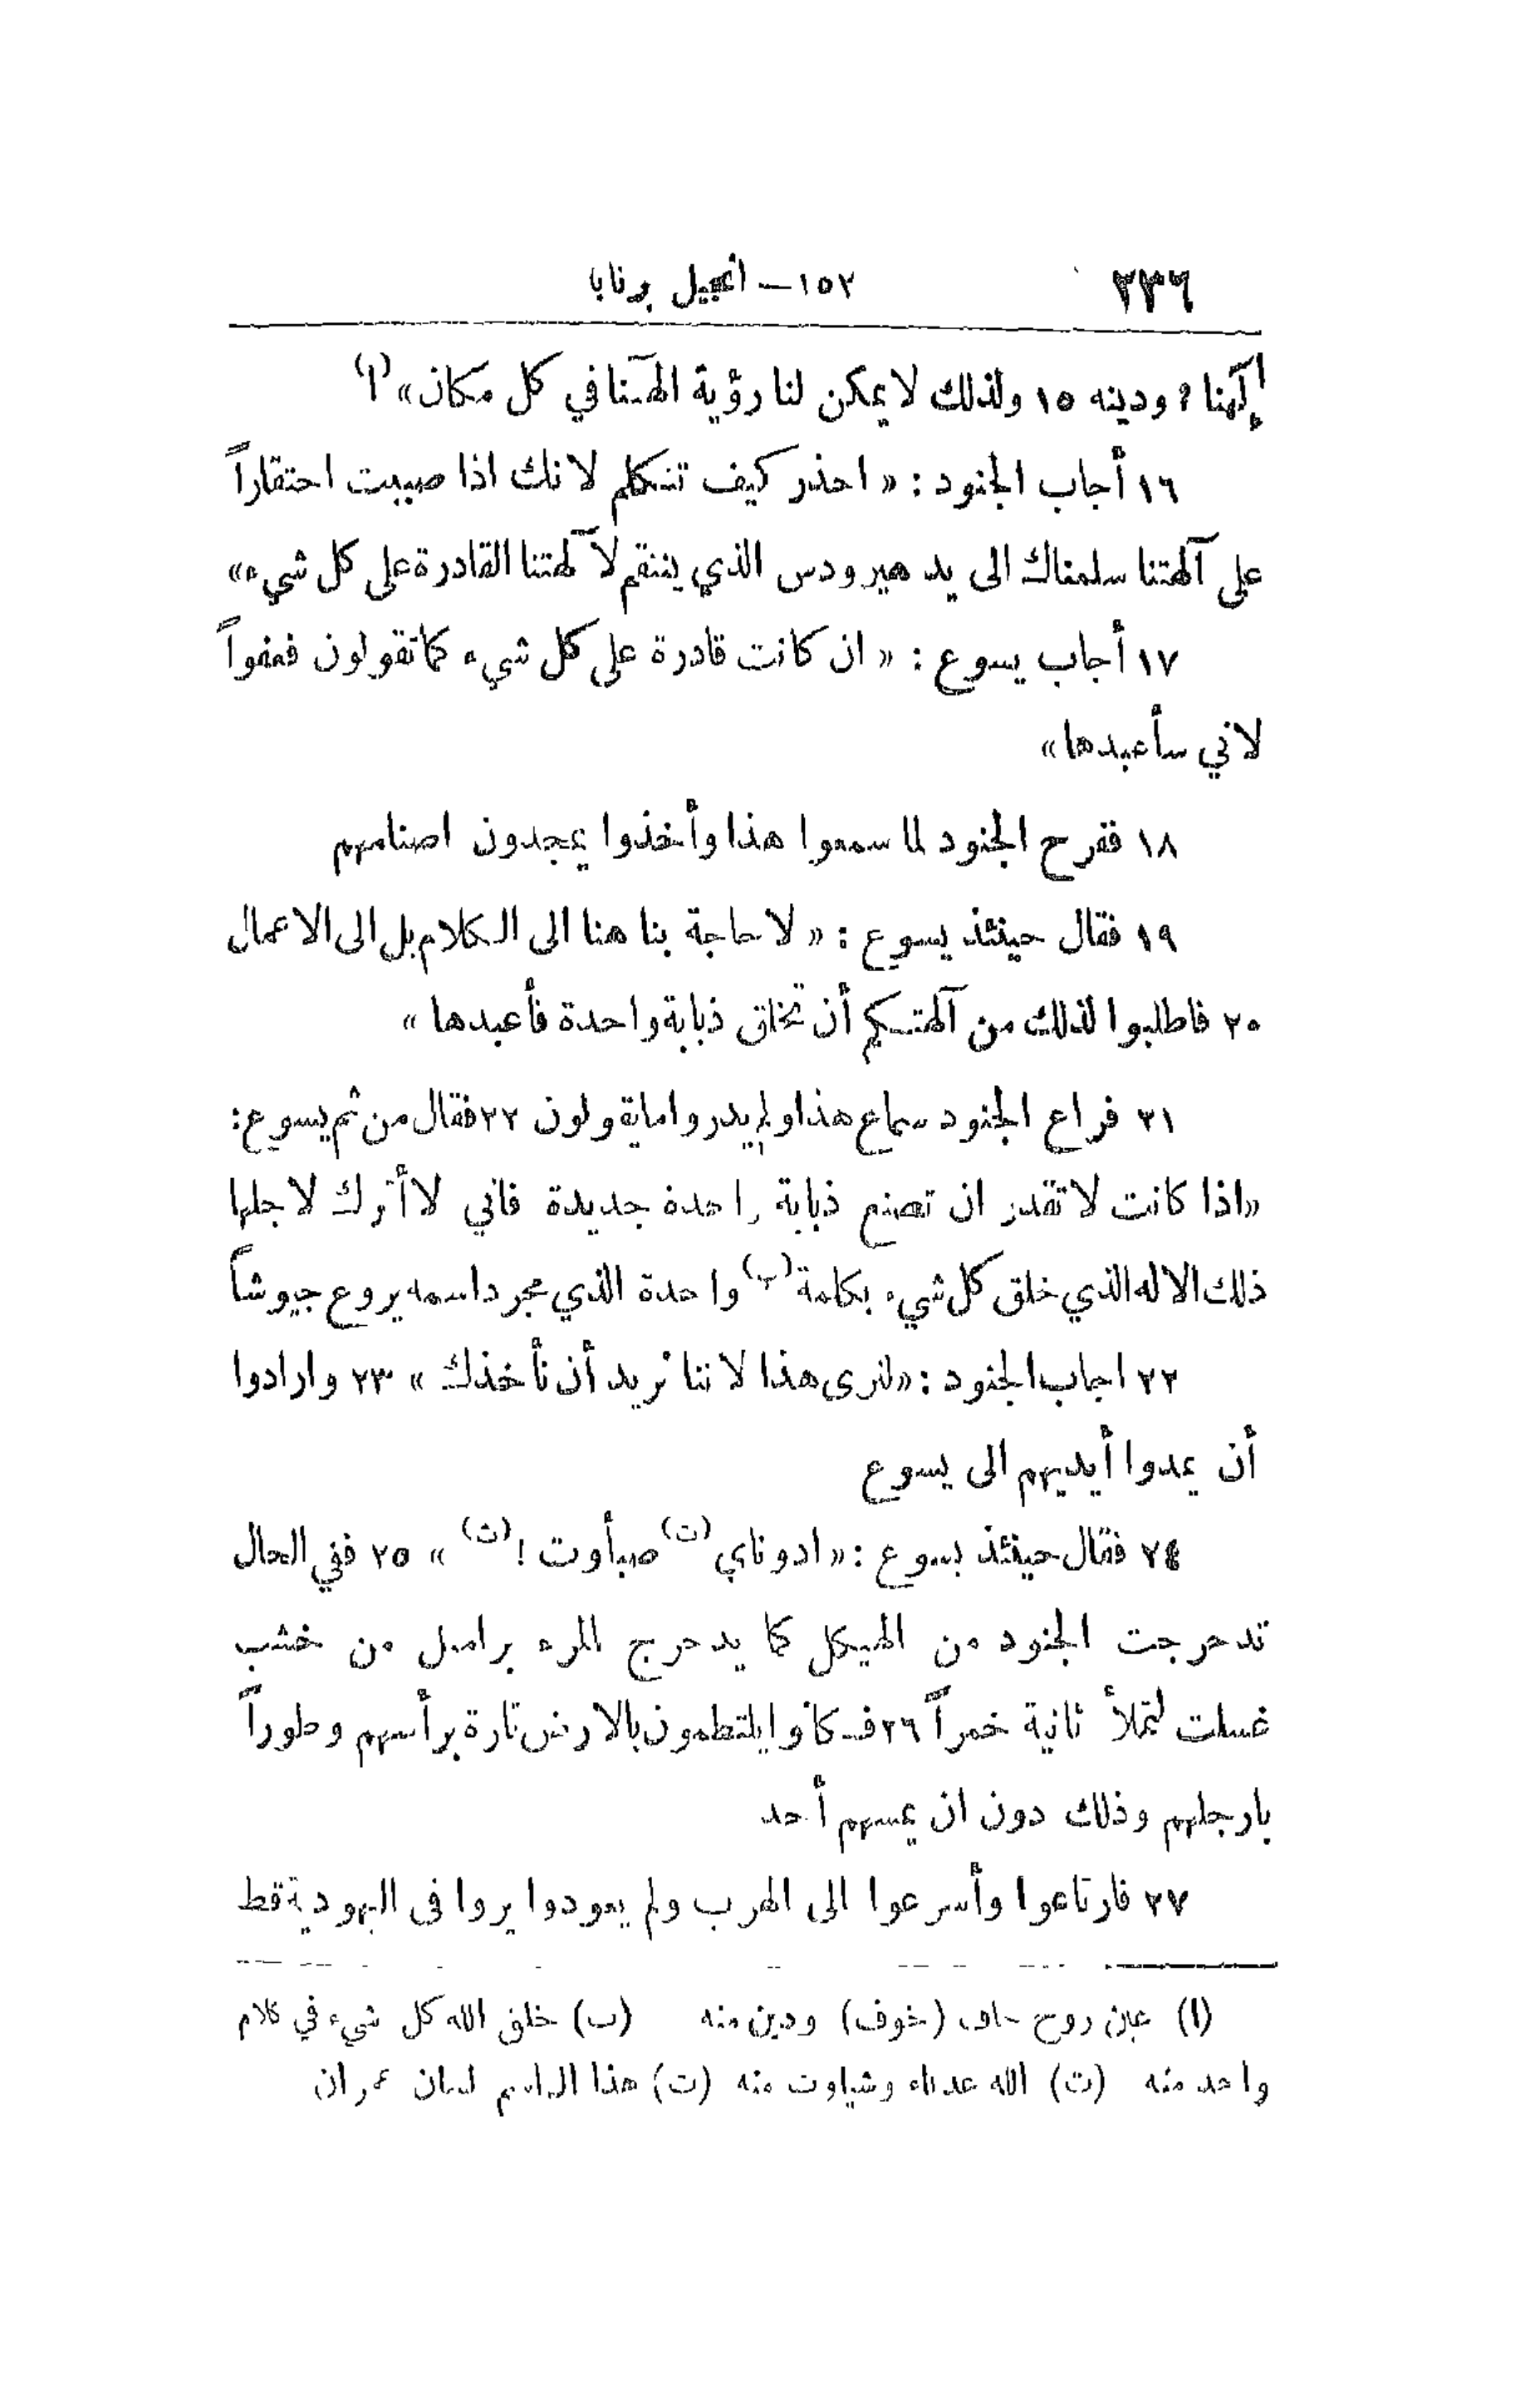 ٢٣٦ ١٥٢ — انجيل برنابا
إلَهنا ؟ ودينه ١٥ ولذلك لا يمكن لنا رؤية الهَنا في كل مكان » (ا)
١٦ أجاب الجنود : « احذر كيف تتكلم لانك اذا صببت احتقاراً
على آلهتنا سلمناك الى يد هيرودس الذي ينتقم لآلهتنا القادرة على كل شيء »
١٧ أجاب يسوع : « ان كانت قادرة على كل شيء كما تقولون فعفواً
لاني سأعبدها »
١٨ ففرح الجنود لما سمعوا هذا وأخذوا يمجدون اصنامهم
١٩ فقال حينئذ يسوع : « لا حاجة بنا هنا الى الكلام بل الى الاعمال
٢٠ فاطلبوا لذلك من آلهتكم أن تخلق ذبابة واحدة فأعبدها »
٢١ فراع الجنود سماع هذا ولم يدروا ما يقولون ٢٢ فقال من ثم يسوع :
« اذا كانت لا تقدر ان تصنع ذبابة واحدة جديدة فاني لا أترك لاجلها
ذلك الاله الذي خلق كل شيء بكلمة (ب) واحدة الذي مجرد اسمه يروع جيوشاً
٢٢ اجاب الجنود : « لنرى هذا لاننا نريد أن نأخذك » ٢٣ وارادوا
أن يمدوا أيديهم الى يسوع
٢٤ فقال حينئذ يسوع : « ادوناي (ت) صبأوت ! (ث) » ٢٥ ففي الحال
تدحرجت الجنود من الهيكل كما يدحرج المرء براميل من خشب
غسلت لتملأ ثانية خمراً ٢٦ فكانوا يلتطمون بالارض تارة برأسهم وطوراً
بارجلهم وذلك دون ان يمسهم أحد
٢٧ فارتاعوا وأسرعوا الى الهرب ولم يعودوا يروا في اليهودية قط
(ا) عين روح (خوف) ودين منه (ب) خلق الله كل شيء في كلام
واحد منه (ت) الله وشياوت منه (ت) هذا الاسم لسان عمران